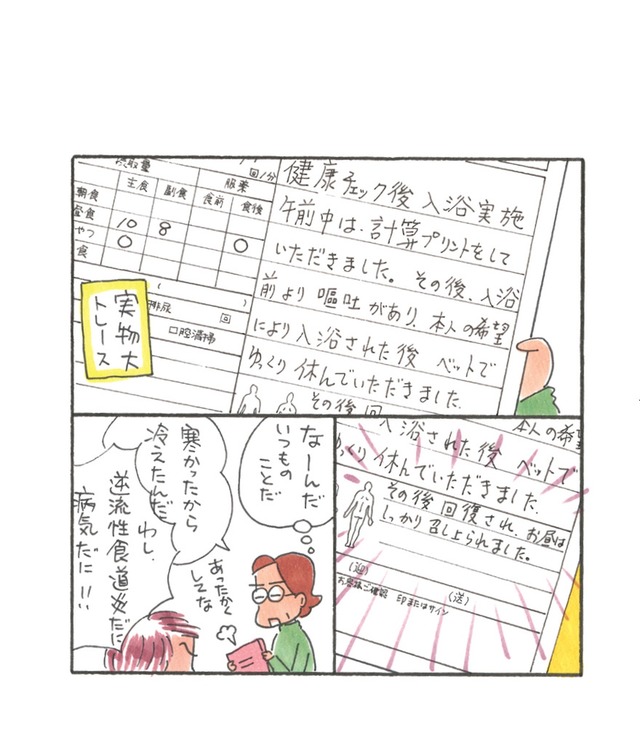 摂取量
回/分
主食
副食
服薬
食前
食後
朝食
昼食
10
8
やつ
〇
〇
食
排尿
回
口腔清掃
実物大
トレース
健康チェック後入浴実施
午前中は、計算プリントをして
いただきました。その後、入浴
前より嘔吐があり、本人の希望
により入浴された後ベットで
ゆっくり休んでいただきました。
その後回
入浴された後ベットで
本人の希望
っくり休んでいただきました。
その後回復され、お昼は
しっかり召し上られました。
(迎)
(送)
印またはサイン
なーんだ
いつもの
ことだ
寒かったから
冷えたんだ
あったかく
してな
わし、
逆流性食道炎だに
病気だに!!